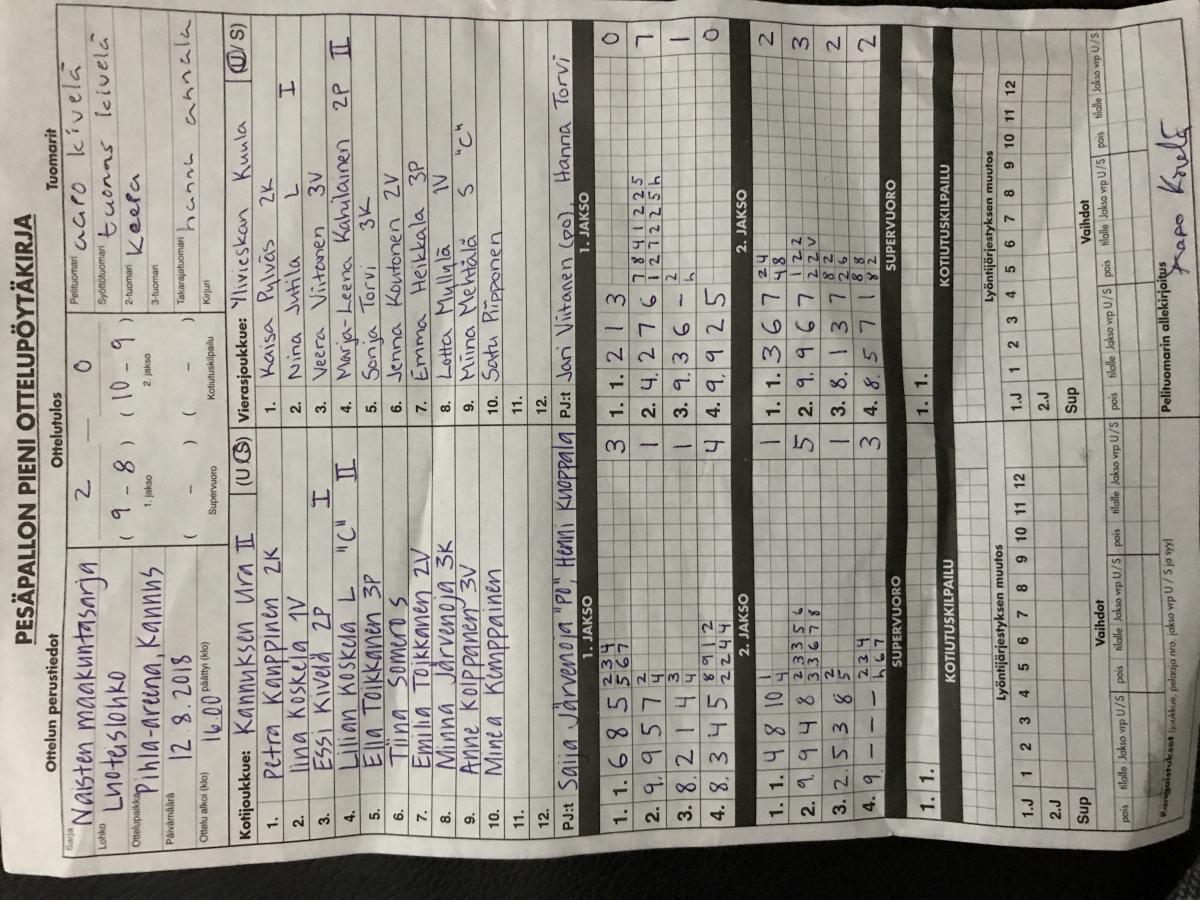 PESÄPALLON PIENI OTTELUPÖYTÄKIRJA
Ottelun perustiedot
Sarja Naisten maakuntasarja
Lohko Luoteislohko
Ottelupaikka Pihla-areena, Kannus
Päivämäärä 12.8.2018
Ottelu alkoi (klo) 16.00 päättyi (klo)
Ottelutulos
2 — 0
( 9 - 8 ) ( 10 - 9 )
1. jakso 2. jakso
( - ) ( - )
Supervuoro Kotiutuskilpailu
Tuomarit
Pelituomari aapo kivelä
Syöttötuomari tuomas kivelä
2-tuomari Keepa
3-tuomari
Takarajatuomari hannu annala
Kirjuri
Kotijoukkue: Kannuksen Ura II (U/S)
1. Petra Kauppinen 2K
2. Iina Koskela 1V
3. Essi Kivelä 2P I
4. Lilian Koskela L "C" II
5. Ella Toikkanen 3P
6. Tiina Somero S
7. Emilia Toikkanen 2V
8. Minna Järvenoja 3K
9. Anne Kolppanen 3V
10. Minea Kumppainen
11.
12.
PJ:t Saija Järvenoja "PO", Henni Knoppala
Vierasjoukkue: Ylivieskan Kuula (U/S)
1. Kaisa Pylväs 2K
2. Nina Jutila L I
3. Veera Viitanen 3V
4. Marja-Leena Kahilainen 2P II
5. Sonja Torvi 3K
6. Jenna Koutonen 2V
7. Emma Heikkala 3P
8. Lotta Myllylä 1V
9. Miina Mehtälä S "C"
10. Satu Piipponen
11.
12.
PJ:t Jari Viiranen (po), Hanna Torvi
1. JAKSO 1. JAKSO
1. 1. 6 8 5 2 3 4 3
5 6 7
2. 9. 9 5 7 2 1
4
3. 8. 2 1 4 3 1
4
4. 8. 3 4 5 8 9 1 2 4
2 2 4 4
1. 1. 2 1 3 0
2. 4. 2 7 6 7 8 4 1 2 2 5 7
1 2 7 2 2 5 h
3. 9. 3 6 - 2 1
h
4. 9. 9 2 5 0
2. JAKSO 2. JAKSO
1. 1. 4 8 10 1 1
4
2. 9. 9 4 8 2 3 3 5 6 5
3 3 6 7 8
3. 2. 5 3 8 2 1
5
4. 9. - - - 2 3 4 3
h 6 7
1. 1. 3 6 7 2 4 2
4 8
2. 9. 9 6 7 1 2 2 3
2 2 V
3. 8. 1 3 7 8 2 2
2 6
4. 8. 5 7 1 8 8 2
8 2
SUPERVUORO SUPERVUORO
1. 1. 1. 1.
KOTIUTUSKILPAILU KOTIUTUSKILPAILU
Lyöntijärjestyksen muutos Lyöntijärjestyksen muutos
1.J 1 2 3 4 5 6 7 8 9 10 11 12 1.J 1 2 3 4 5 6 7 8 9 10 11 12
2.J 2.J
Sup Sup
Vaihdot Vaihdot
pois tilalle Jakso vrp U / S pois tilalle Jakso vrp U / S pois tilalle Jakso vrp U / S pois tilalle Jakso vrp U / S pois tilalle Jakso vrp U / S pois tilalle Jakso vrp U / S
Rangaistukset (joukkue, pelaaja nro, jakso vrp U / S ja syy)
Pelituomarin allekirjoitus
Aapo Kivelä